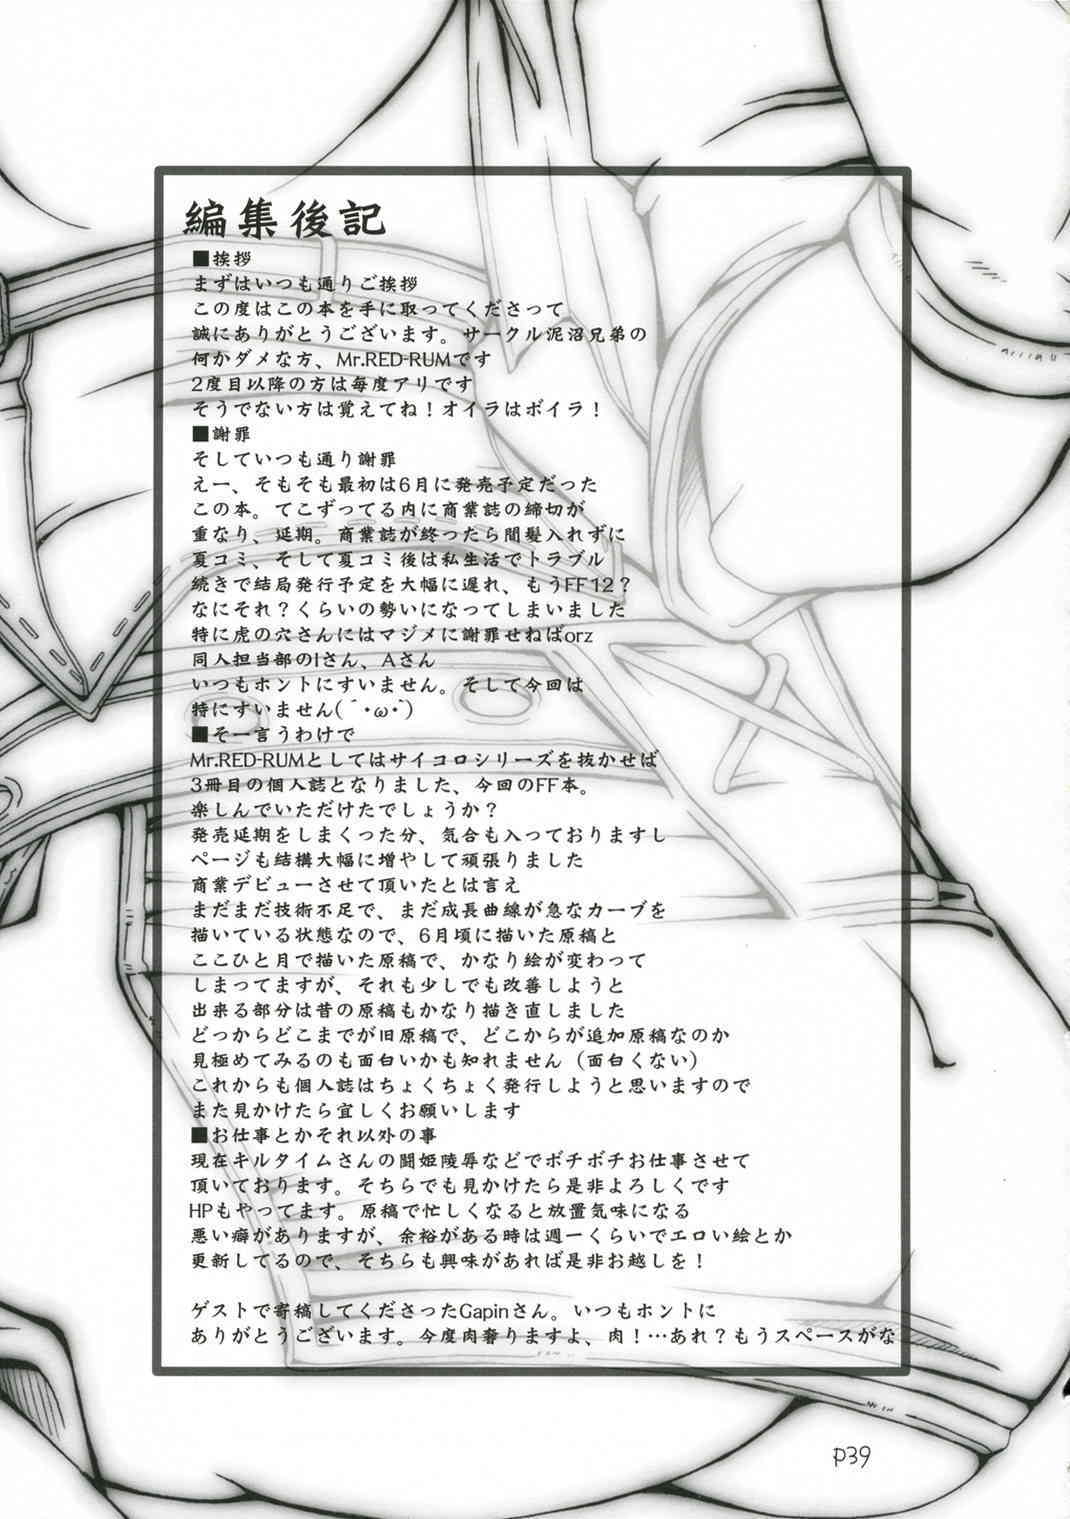 編集後記
■挨拶
まずはいつも通りご挨拶
この度はこの本を手に取ってくださって
誠にありがとうございます。サークル泥沼兄弟の
何かダメな方、Mr.RED-RUMです
2度目以降の方は毎度アリです
そうでない方は覚えてね！オイラはボイラ！
■謝罪
そしていつも通り謝罪
えー、そもそも最初は6月に発売予定だった
この本。てこずってる内に商業誌の締切が
重なり、延期。商業誌が終ったら間髪入れずに
夏コミ、そして夏コミ後は私生活でトラブル
続きで結局発行予定を大幅に遅れ、もうFF12？
なにそれ？くらいの勢いになってしまいました
特に虎の穴さんにはマジメに謝罪せねばorz
同人担当部のIさん、Aさん
いつもホントにすいません。そして今回は
特にすいません(´・ω・`)
■そー言うわけで
Mr.RED-RUMとしてはサイコロシリーズを抜かせば
3冊目の個人誌となりました、今回のFF本。
楽しんでいただけたでしょうか？
発売延期をしまくった分、気合も入っておりますし
ページも結構大幅に増やして頑張りました
商業デビューさせて頂いたとは言え
まだまだ技術不足で、まだ成長曲線が急なカーブを
描いている状態なので、6月頃に描いた原稿と
ここひと月で描いた原稿で、かなり絵が変わって
しまってますが、それも少しでも改善しようと
出来る部分は昔の原稿もかなり描き直しました
どっからどこまでが旧原稿で、どこからが追加原稿なのか
見極めてみるのも面白いかも知れません（面白くない）
これからも個人誌はちょくちょく発行しようと思いますので
また見かけたら宜しくお願いします
■お仕事とかそれ以外の事
現在キルタイムさんの闘姫陵辱などでボチボチお仕事させて
頂いております。そちらでも見かけたら是非よろしくです
HPもやってます。原稿で忙しくなると放置気味になる
悪い癖がありますが、余裕がある時は週一くらいでエロい絵とか
更新してるので、そちらも興味があれば是非お越しを！
ゲストで寄稿してくださったGapinさん。いつもホントに
ありがとうございます。今度肉奢りますよ、肉！…あれ？もうスペースがな
P39